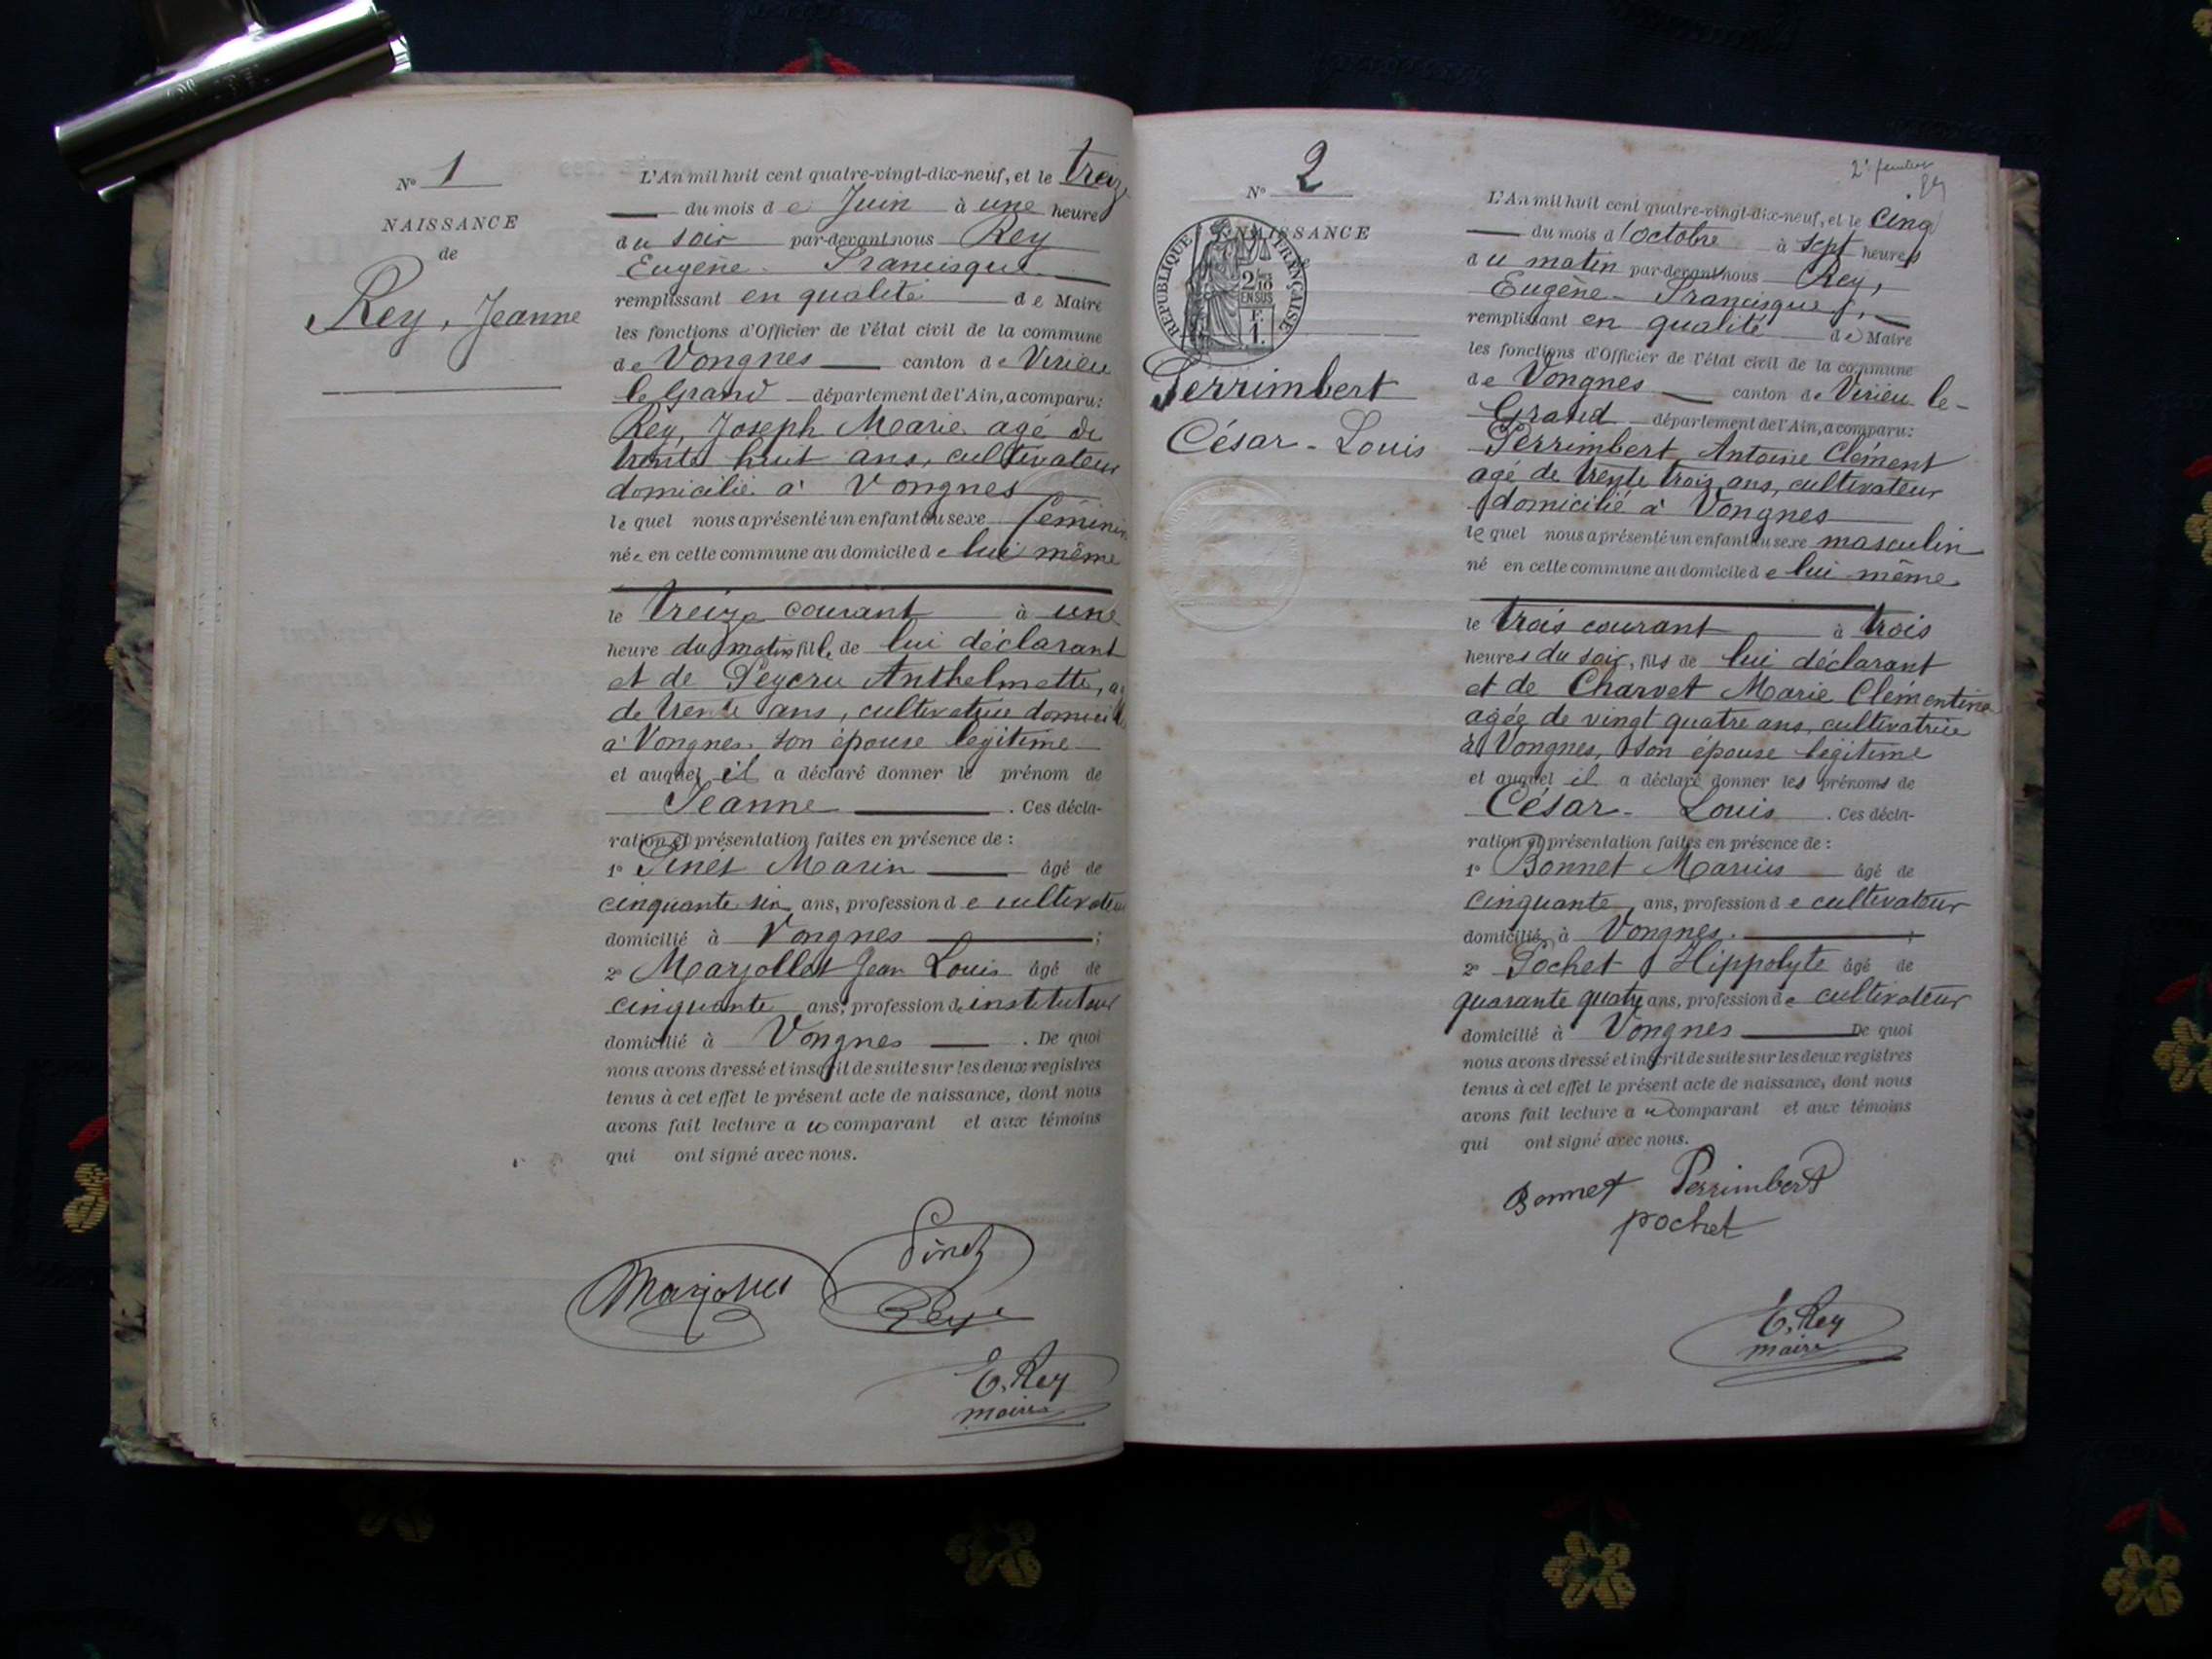 N° 1
NAISSANCE
de
Rey, Jeanne
L'An mil huit cent quatre-vingt-dix-neuf, et le treize
du mois de Juin à une heure
du soir par-devant nous Rey
Eugène-Francisque
remplissant en qualité de Maire
les fonctions d'Officier de l'état civil de la commune
de Vongnes canton de Virieu
le Grand département de l'Ain, a comparu:
Rey, Joseph Marie agé de
trente huit ans, cultivateur
domicilié à Vongnes
lequel nous a présenté un enfant du sexe féminin
née en cette commune au domicile de lui même
le treize courant à une
heure du matin fille de lui déclarant
et de Peycru Anthelmette, ag
de trente ans, cultivatrice domicil
à Vongnes son épouse légitime
et auquel il a déclaré donner le prénom de
Jeanne. Ces décla-
ration et présentation faites en présence de :
1° Pinet Marin âgé de
cinquante six ans, profession de cultivateur
domicilié à Vongnes ;
2° Marjollet Jean Louis âgé de
cinquante ans, profession de instituteur
domicilié à Vongnes. De quoi
nous avons dressé et inscrit de suite sur les deux registres
tenus à cet effet le présent acte de naissance, dont nous
avons fait lecture au comparant et aux témoins
qui ont signé avec nous.
Pinet
Marjollet
Rey
E. Rey
maire
2e feuillet
N° 2
NAISSANCE
RÉPUBLIQUE FRANÇAISE
2/10
EN SUS
F.
1.
Perrimbert
César-Louis
L'An mil huit cent quatre-vingt-dix-neuf, et le cinq
du mois d'octobre à sept heures
du matin par-devant nous Rey,
Eugène-Francisque,
remplissant en qualité de Maire
les fonctions d'Officier de l'état civil de la commune
de Vongnes canton de Virieu le-
Grand département de l'Ain, a comparu:
Perrimbert, Antoine Clément
agé de trente trois ans, cultivateur
domicilié à Vongnes
lequel nous a présenté un enfant du sexe masculin
né en cette commune au domicile de lui même
le trois courant à trois
heures du soir, fils de lui déclarant
et de Charvet Marie Clémentine
agée de vingt quatre ans, cultivatrice
à Vongnes, son épouse légitime
et auquel il a déclaré donner les prénoms de
César-Louis. Ces décla-
ration et présentation faites en présence de :
1° Bonnet Marius âgé de
cinquante, ans, profession de cultivateur
domicilié à Vongnes. ;
2° Pochet Hippolyte âgé de
quarante quatre ans, profession de cultivateur
domicilié à Vongnes De quoi
nous avons dressé et inscrit de suite sur les deux registres
tenus à cet effet le présent acte de naissance, dont nous
avons fait lecture au comparant et aux témoins
qui ont signé avec nous.
Bonnet Perrimbert
pochet
E. Rey
maire